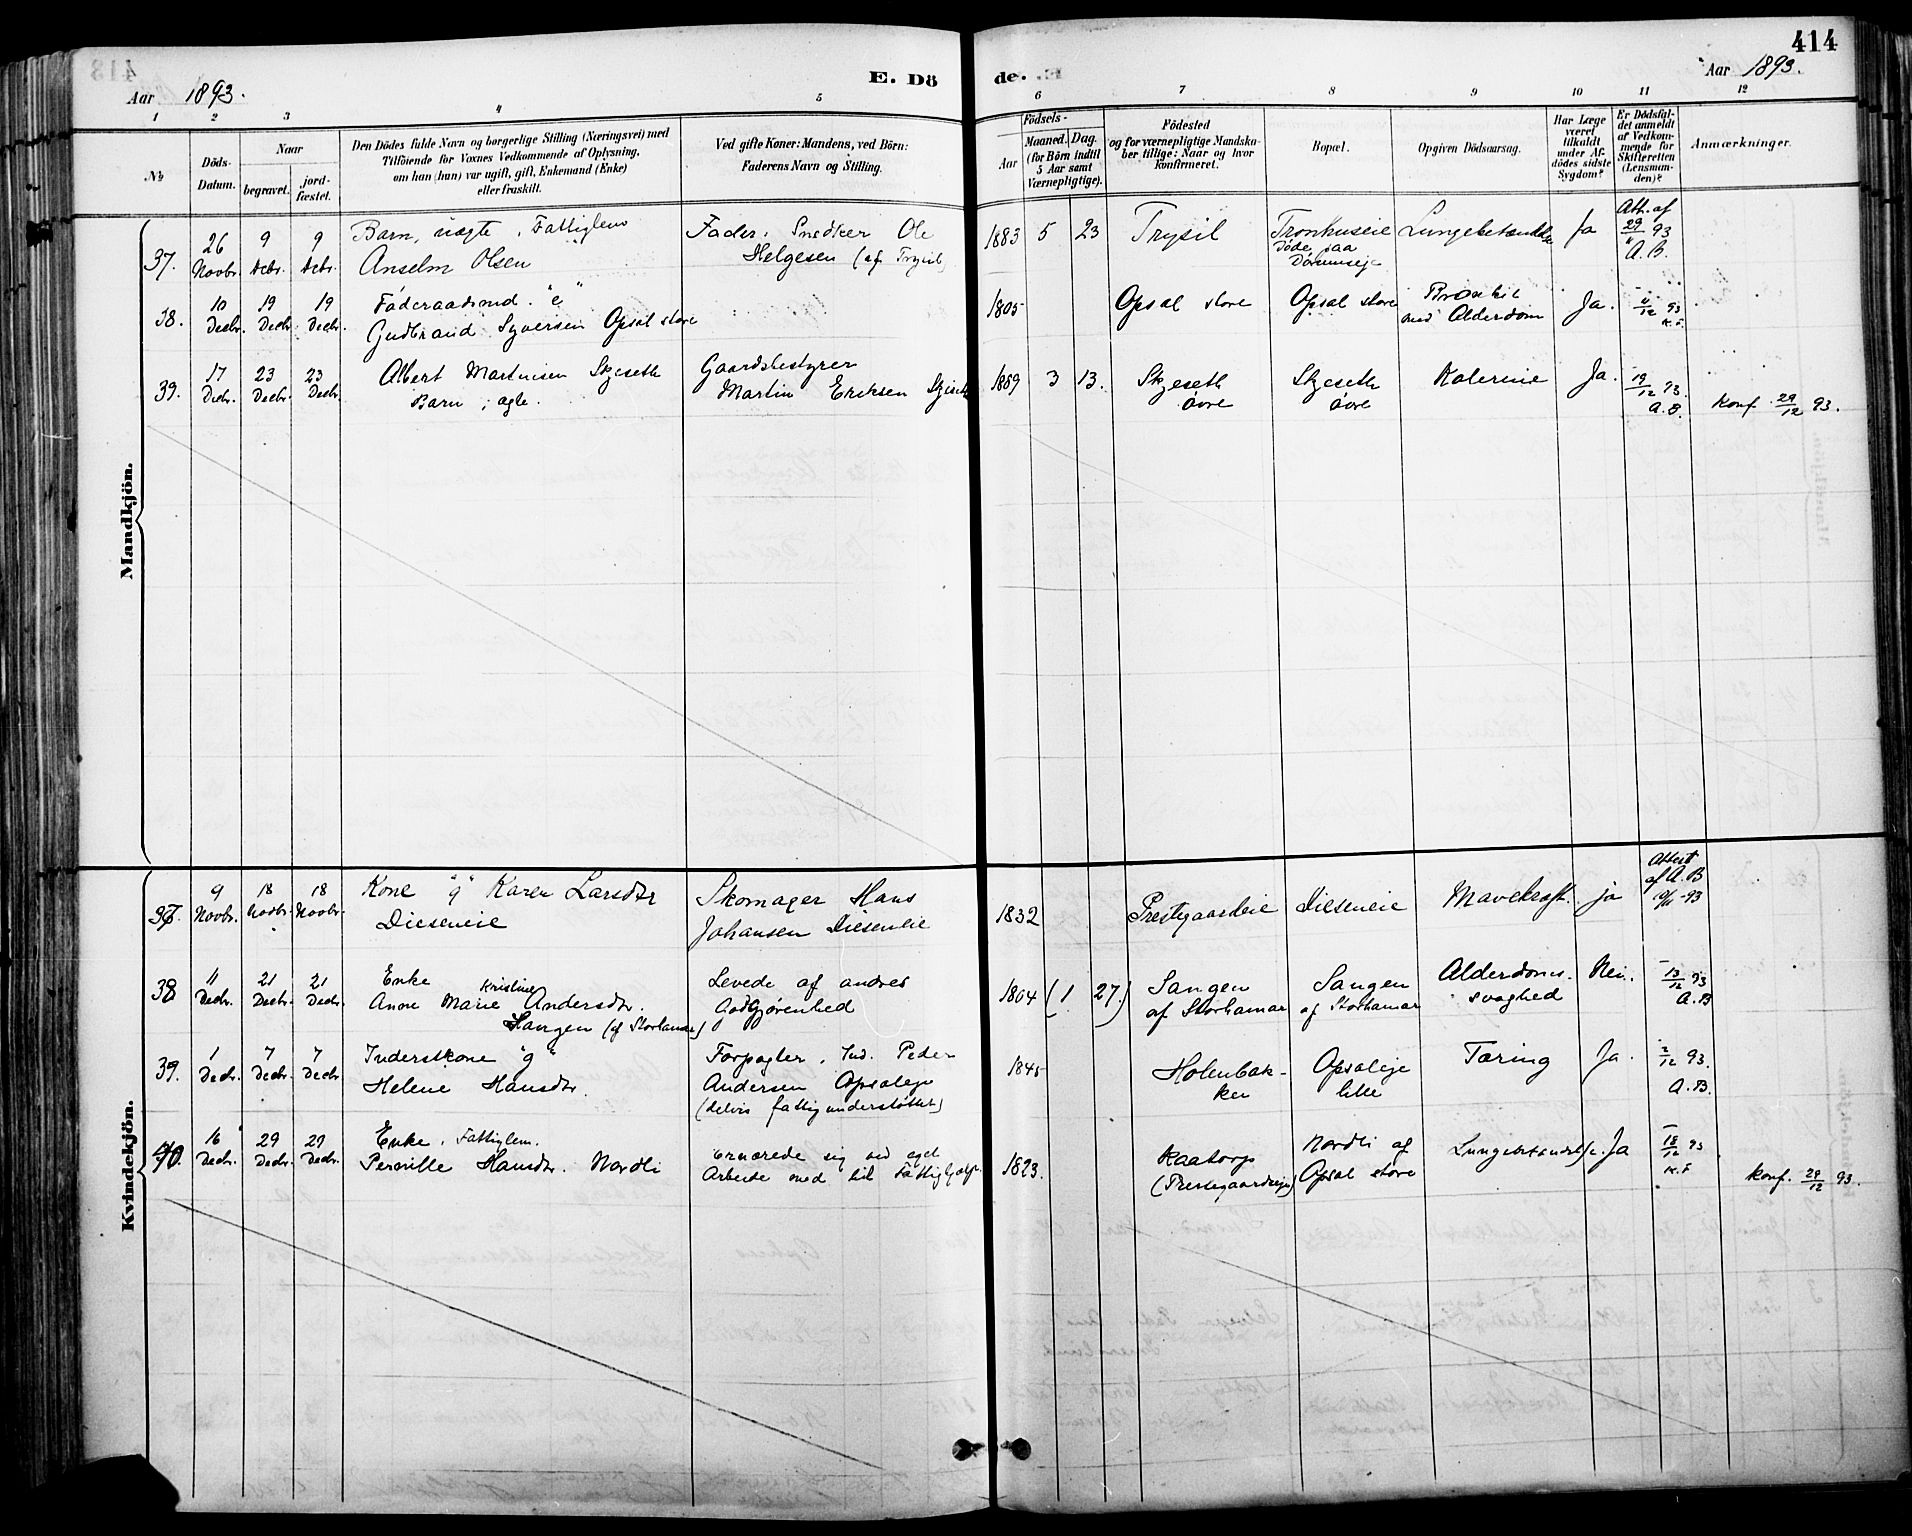 414
Aar 1893.
E. Dö
de.
Aar 1893.
1 2 3 4 5 6 7 8 9 10 11 12
№
Döds-
Datum.
Naar
begravet.
jord-
fæstet.
Den Dödes fulde Navn og borgerlige Stilling (Næringsvei) med
Tilföiende for Voxnes Vedkommende af Oplysning,
om han (hun) var ugift, gift, Enkemand (Enke)
eller fraskilt.
Ved gifte Koner: Mandens, ved Börn:
Faderens Navn og Stilling.
Födsels-
Aar
Maaned.
Dag.
(for Börn indtil
5 Aar samt
Værnepligtige).
Födested
og for værnepligtige Mandska-
ber tillige: Naar og hvor
konfirmeret.
Bopæl.
Opgiven Dödsaarsag.
Har Læge
været
tilkaldt
under Af-
dödes sidste
Sygdom?
Er Dödsfal-
det anmeldt
af Vedkom-
mende for
Skifteretten
(Lensman-
den)?
Anmærkninger.
Mandkjön.
37. 26 Novbr. 9 Decbr. 9 Decbr.
Barn, uægte, Fattiglem
Anselm Olsen
Fader: Snedker Ole
Helgesen (af Trysil)
1883 5 23
Trysil
Tronhuseie
Døde paa
Lungebetændelse
Ja
Att. af
29/11 93
A.B.
38. 10 Decbr. 19 Decbr. 19 Decbr.
Føderaadsmd. "e"
Gudbrand Syversen Opsal store
1805
Opsal store
Opsal store
Bronkit
med Alderdom
Ja.
11/12 93
K.F.
39. 17 Decbr. 23 Decbr. 23 Decbr.
Albert Martinsen Skjeseth
Barn, ægte.
Gaardsbestyrer
Martin Eriksen Skjeseth
1889 3 13.
Skjeseth
øvre
Skjeseth
øvre
Kolerine
Ja.
19/12 93.
A.B.
Konf. 29/12 93.
Kvindekjön.
37. 9 Novbr. 18 Novbr. 18 Novbr.
Kone "g" Karen Larsdtr
Dieseneie
Skomager Hans
Johansen Dieseneie
1832
Prestegaardeie
Dieseneie
Mavekræft.
ja
Attest
af A.B
10/11 -93
38. 11 Decbr. 21 Decbr. 21 Decbr.
Enke
Anne Marie Kristine Andersdtr.
Sangen (af Storhamar)
Levede af andres
Godgjørenhed
1804 (1 27.)
Sangen
af Storhamar
Sangen
af Storhamar
Alderdoms-
svaghed
Nei.
13/12 93
A.B
39. 1 Decbr. 7 Decbr. 7 Decbr.
Inderstkone "g"
Helene Hansdtr.
Forpagter, Ind. Peder
Andersen Opsaleje
(delvis fattigunderstøttet)
1845
Holenbak-
ken
Opsaleje
lille
Tæring
Ja.
2/12 93.
A.B.
40. 16 Decbr. 29 Decbr. 29 Decbr.
Enke. Fattiglem.
Pernille Hansdtr. Nordli
Ernærede sig ved eget
Arbeide med lidt Fattighjælp.
1823.
Kaatorp
(Prestegaardseje)
Nordli af
Opsal store
Lungebetændelse.
Ja
18/12 93
K.F
Konf. 29/12 93.